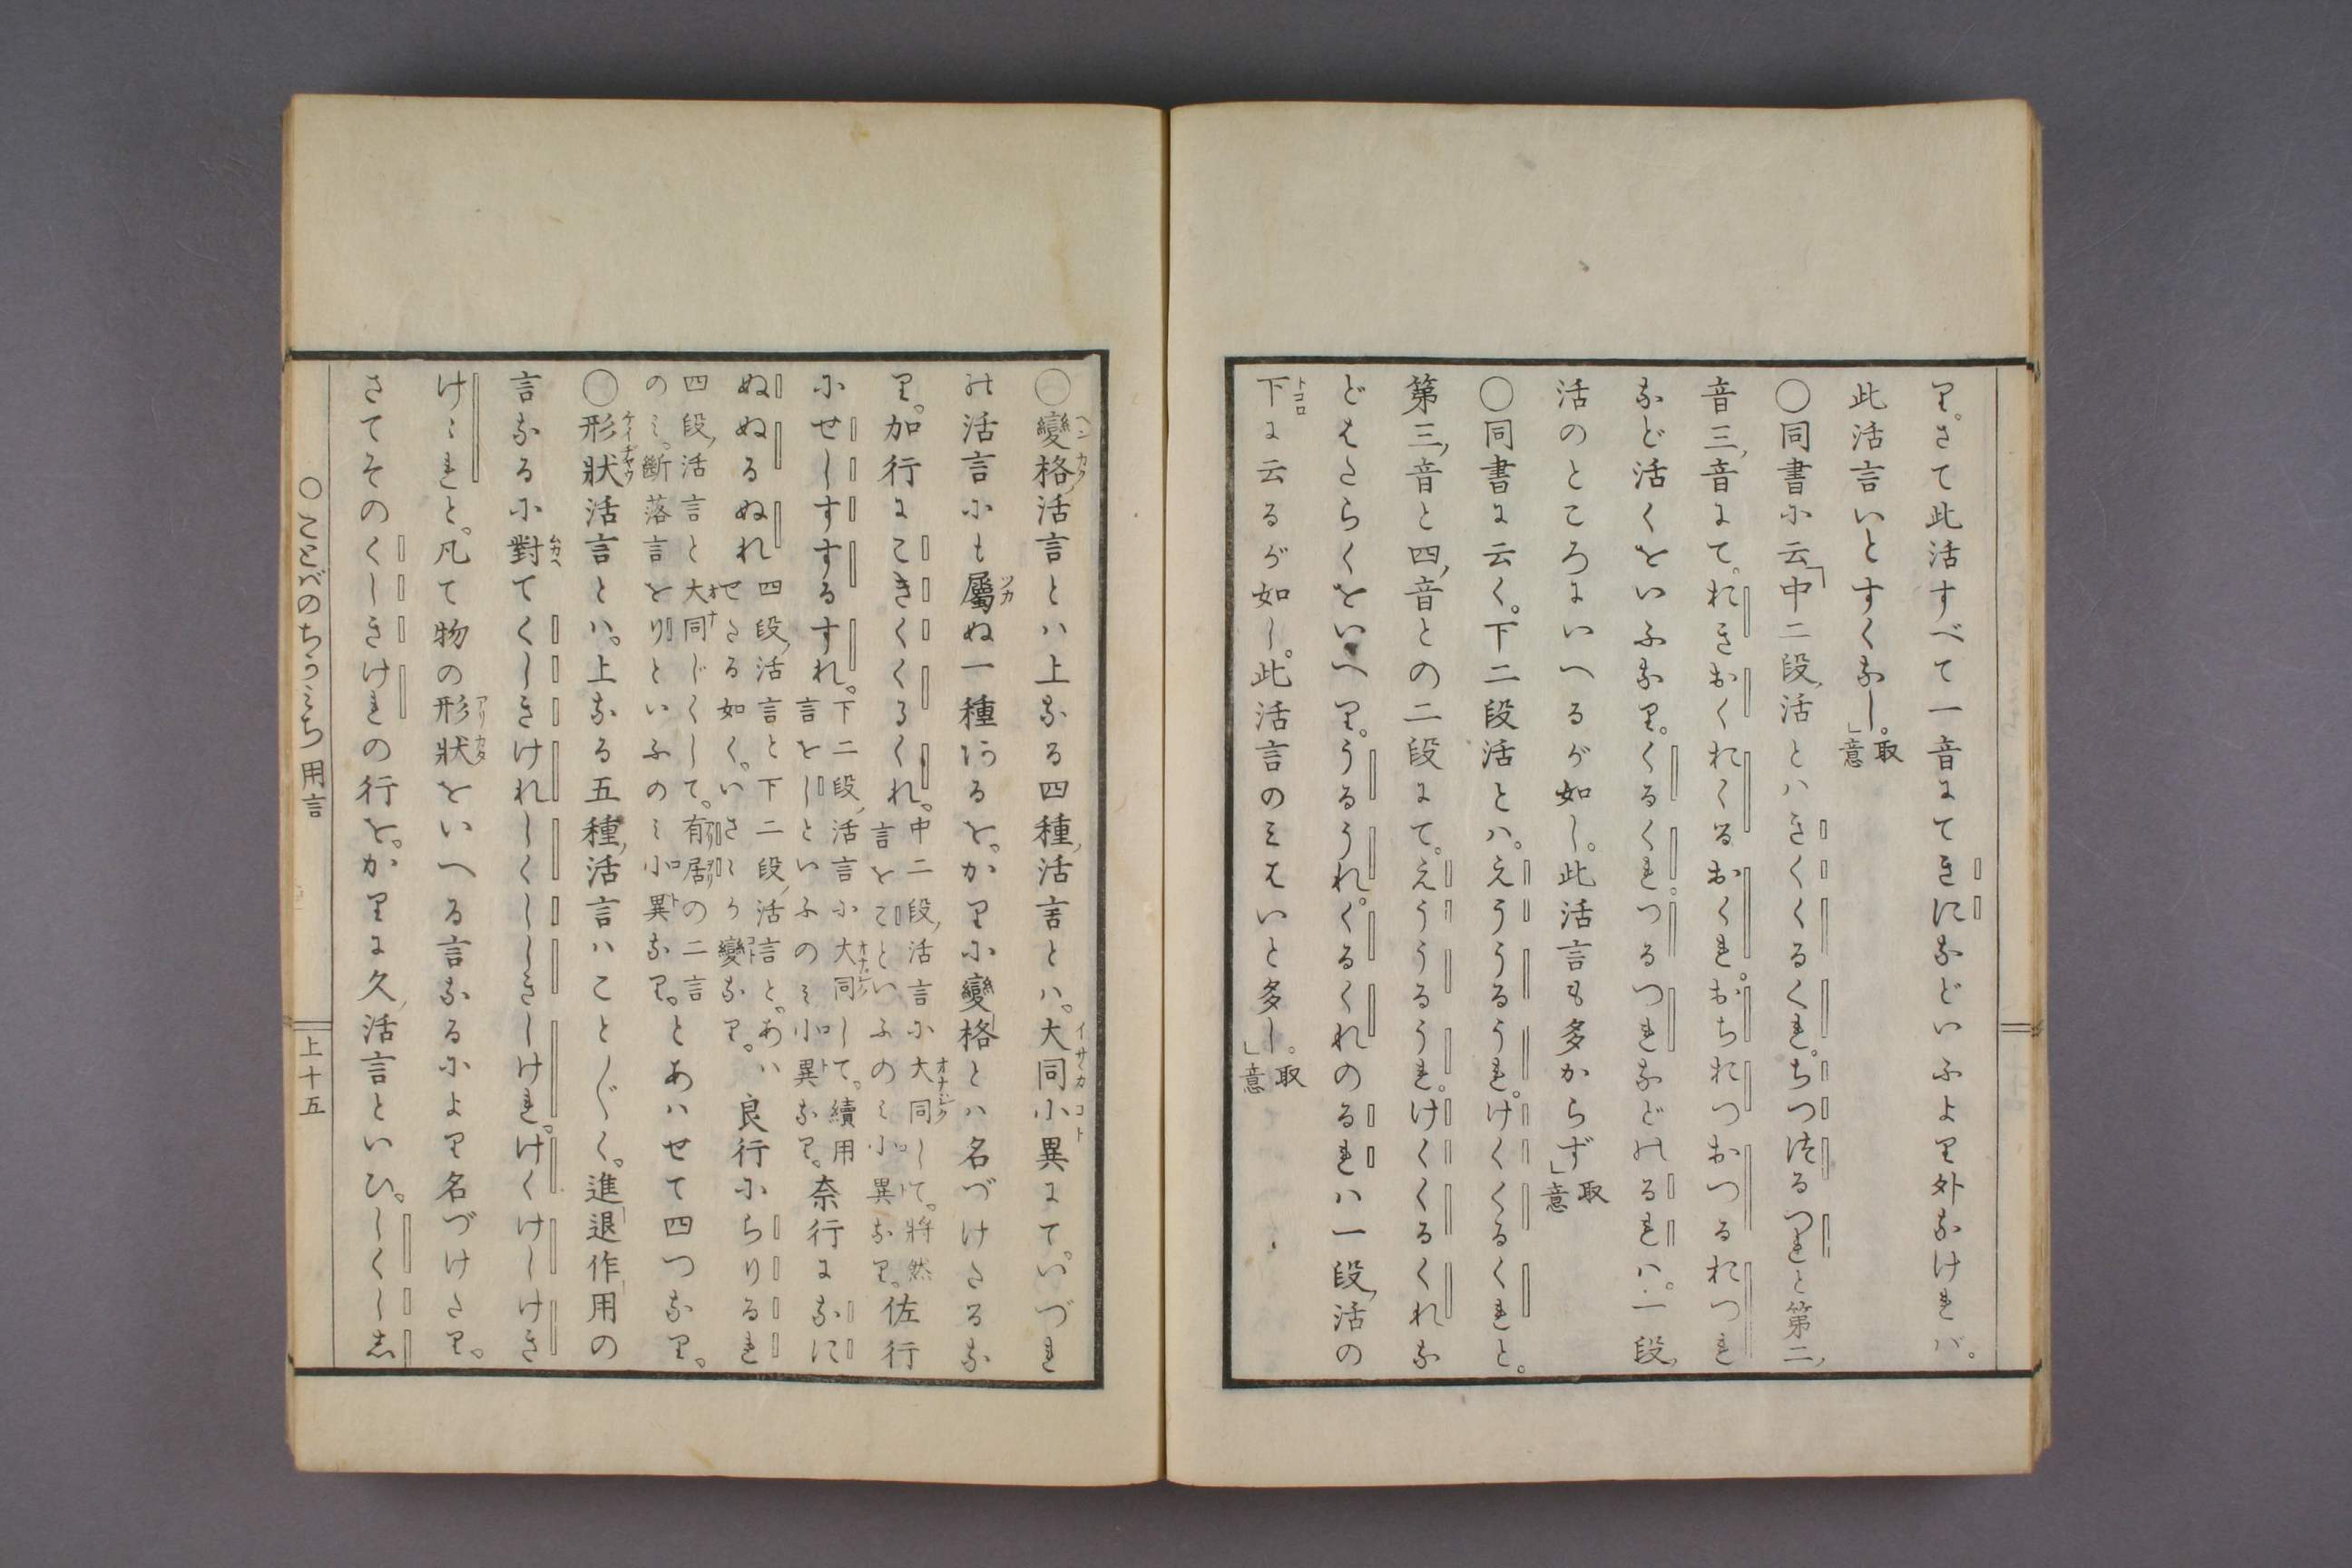 り。さて此活すべて一音にてきになどいふより外なければ。
此活言いとすくなし。」取意
〇同書に云「中二段ノ活とハきくくるくれ。ちつつるつれと第二ノ
音三ノ音にて。おきおくおくるおくれ。おちおつおつるおつれ
など活くをいふなり。くるくれ。つるつれなどのるれハ。一段ノ
活のところにいへるが如し。此活言も多からず」取意
〇同書に云く。下二段活とハ。えううるうれ。けくくるくれと。
第三ノ音と四ノ音との二段にて。えううるうれ。けくくるくれな
どはたらくをいへり。うるうれ。くるくれのるれハ一段ノ活の
下に云るが如し。此活言のミはいと多し。」取意
〇變格ノ活言とハ上なる四種ノ活言とハ。大同小異にて。いづれ
の活言にも屬ぬ一種あるを。かりに變格とハ名づけたるな
り。加行にこきくくるくれ。中二段ノ活言に大同して。將然言をこといふのミ小異なり。佐行
にせしすするすれ。下二段ノ活言に大同して。續用言をしといふのミ小異なり。奈行になに
ぬぬるぬれ四段ノ活言と下二段ノ活言と。あハせたる如く。いさゝか變なり。良行にらりるれ
四段ノ活言と大同じくして。有居の二言のミ。斷落言をりといふのミ小異なり。とあハせて四つなり。
〇形狀活言とハ。上なる五種ノ活言ハこと〴〵く。進退作用の
言なるに對てくしきけれしくししきしけれ。けくけしけき
けゝれと。凡て物の形狀をいへる言なるにより名づけたり。
さてそのくしきけれの行を。かりに久ノ活言といひ。しくし志
〇ことばのちかミち 用言
上十五